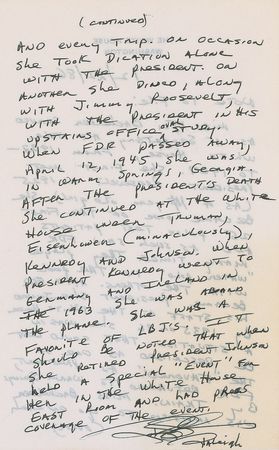 (CONTINUED)
AND EVERY TRIP. ON OCCASION
SHE TOOK DICATION ALONE
WITH THE PRESIDENT. ON
ANOTHER SHE DINED, ALONG
WITH JIMMY ROOSEVELT,
WITH THE PRESIDENT IN HIS
UPSTAIRS OFFICE OVAL STUDY.
WHEN FDR PASSED AWAY,
APRIL 12, 1945, SHE WAS
IN WARM SPRINGS, GEORGIA.
AFTER THE PRESIDENT'S DEATH
SHE CONTINUED AT THE WHITE
HOUSE UNDER TRUMAN,
EISENHOWER (MIRACULOUSLY),
KENNEDY AND JOHNSON. WHEN
PRESIDENT KENNEDY WENT TO
GERMANY AND IRELAND IN
THE 1963 SHE WAS ABOARD
THE PLANE. SHE WAS A
FAVORITE OF LBJ'S. IT
SHOULD BE NOTED THAT WHEN
SHE RETIRED PRESIDENT JOHNSON
HELD A SPECIAL "EVENT" FOR
HER IN THE WHITE HOUSE
EAST ROOM AND HAD PRESS
COVERAGE OF THE EVENT.